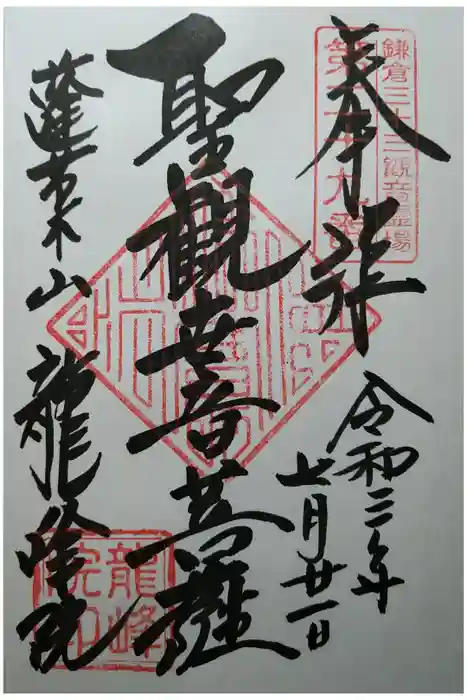 鎌倉三十三観音霊場
第二十九番
奉拝
令和三年
七月廿一日
聖觀世音菩薩
蓬莱山 龍峰院
龍峰院印